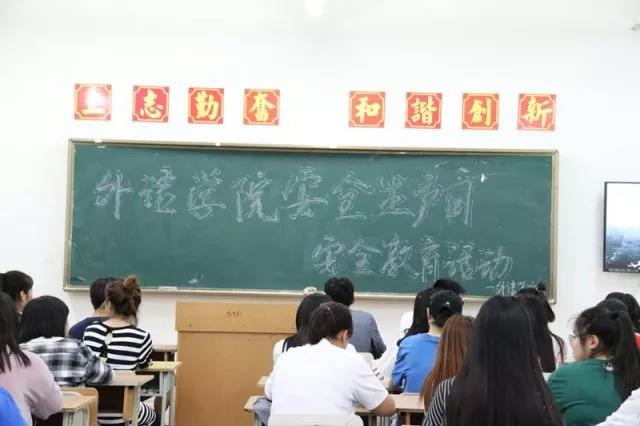 立志勤奮 和諧創新
外语学院安全生产月
安全教育活动